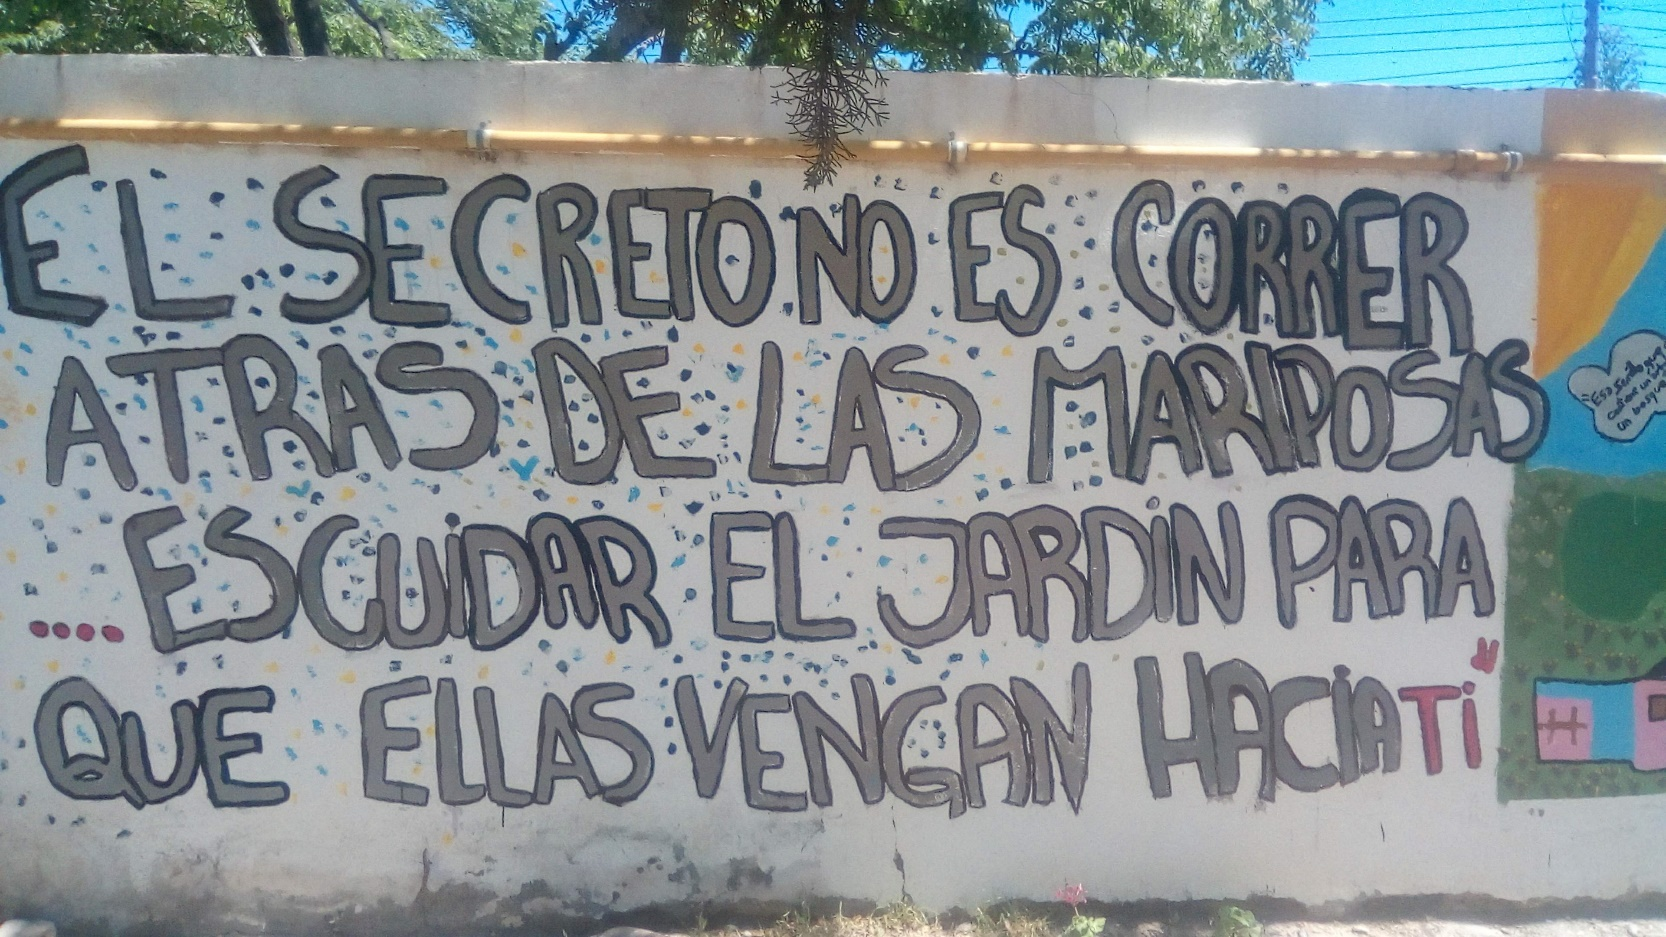 EL SECRETO NO ES CORRER
ATRAS DE LAS MARIPOSAS
.... ES CUiDAR EL JARDiN PARA
QUE ELLAS VENGAN HACiA Ti
un bosque